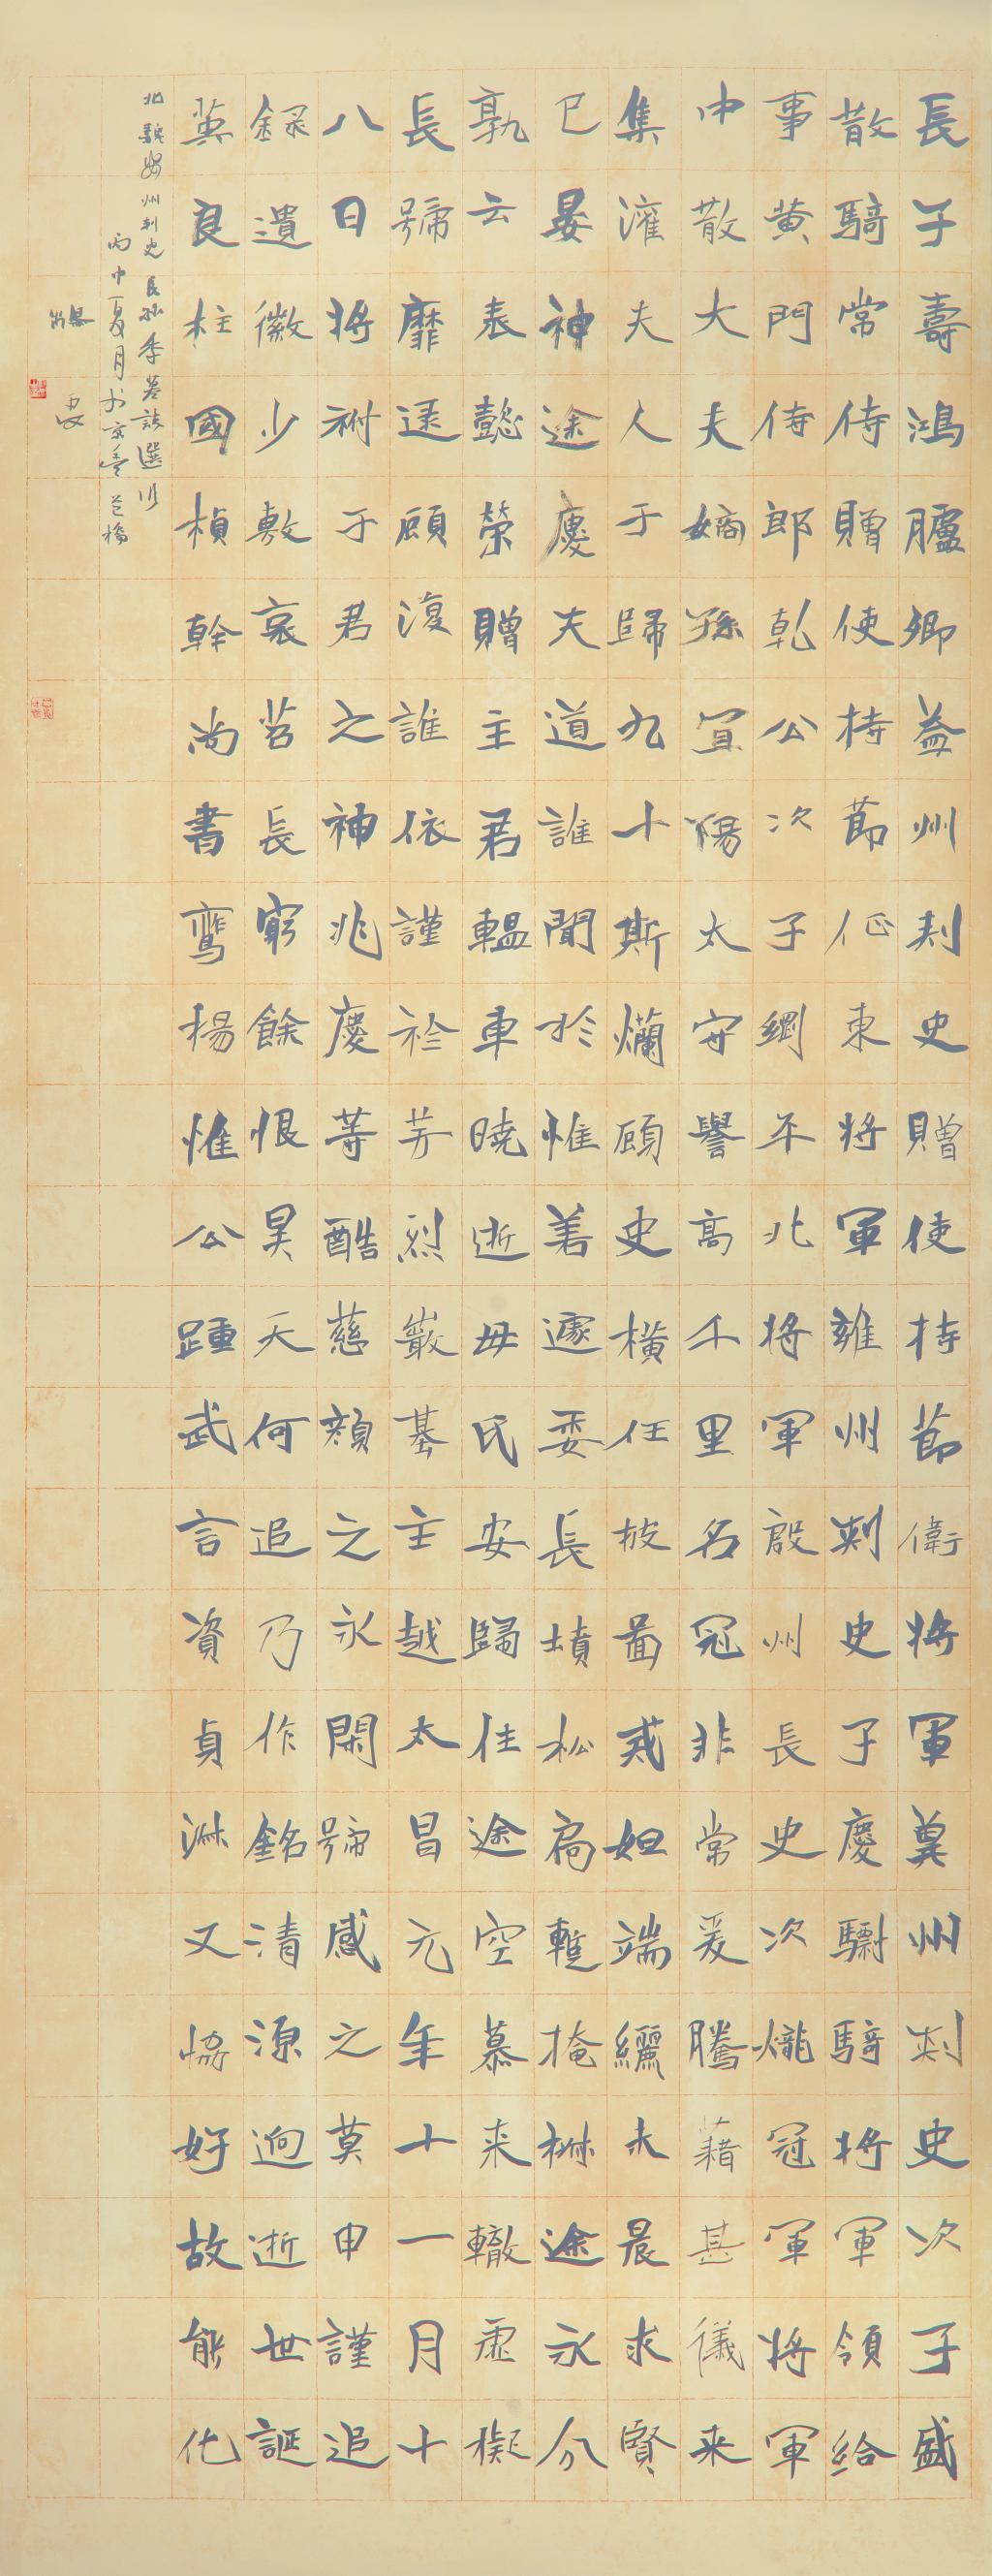 長子壽鴻臚卿益州刺史贈使持節衛將軍冀州刺史次子盛
散騎常侍贈使持節征東將軍雍州刺史子慶驃騎將軍領給
事黃門侍郎乾公次子綱平北將軍殷州長史次爖冠軍將軍
中散大夫嫡孫宣陽太守譽高千里名冠非常爰騰藉甚儀來
集灌夫人于歸九十斯爛顧史橫任披圖戒妲端纚未晨求賢
已晏神途慶夫道誰聞於惟善遽委長墳松扃蹔掩楙途永分
孰云表懿榮贈主君輼車曉逝毋氏安歸往途空慕来轍虛擬
長號靡逮顧復誰依謹衿芳烈嚴墓主越太昌元年十一月十
八日將祔于君之神兆慶等酷慈顏之永閑號感之莫申謹追
錄遺徽少敷哀苕長窮餘恨昊天何追乃作銘清源迥逝世誕
英良柱國楨幹尚書鸞楊惟公踵武言資貞淋又協好故能化
北魏 州刺史長孫季墓誌選
丙申夏月於京